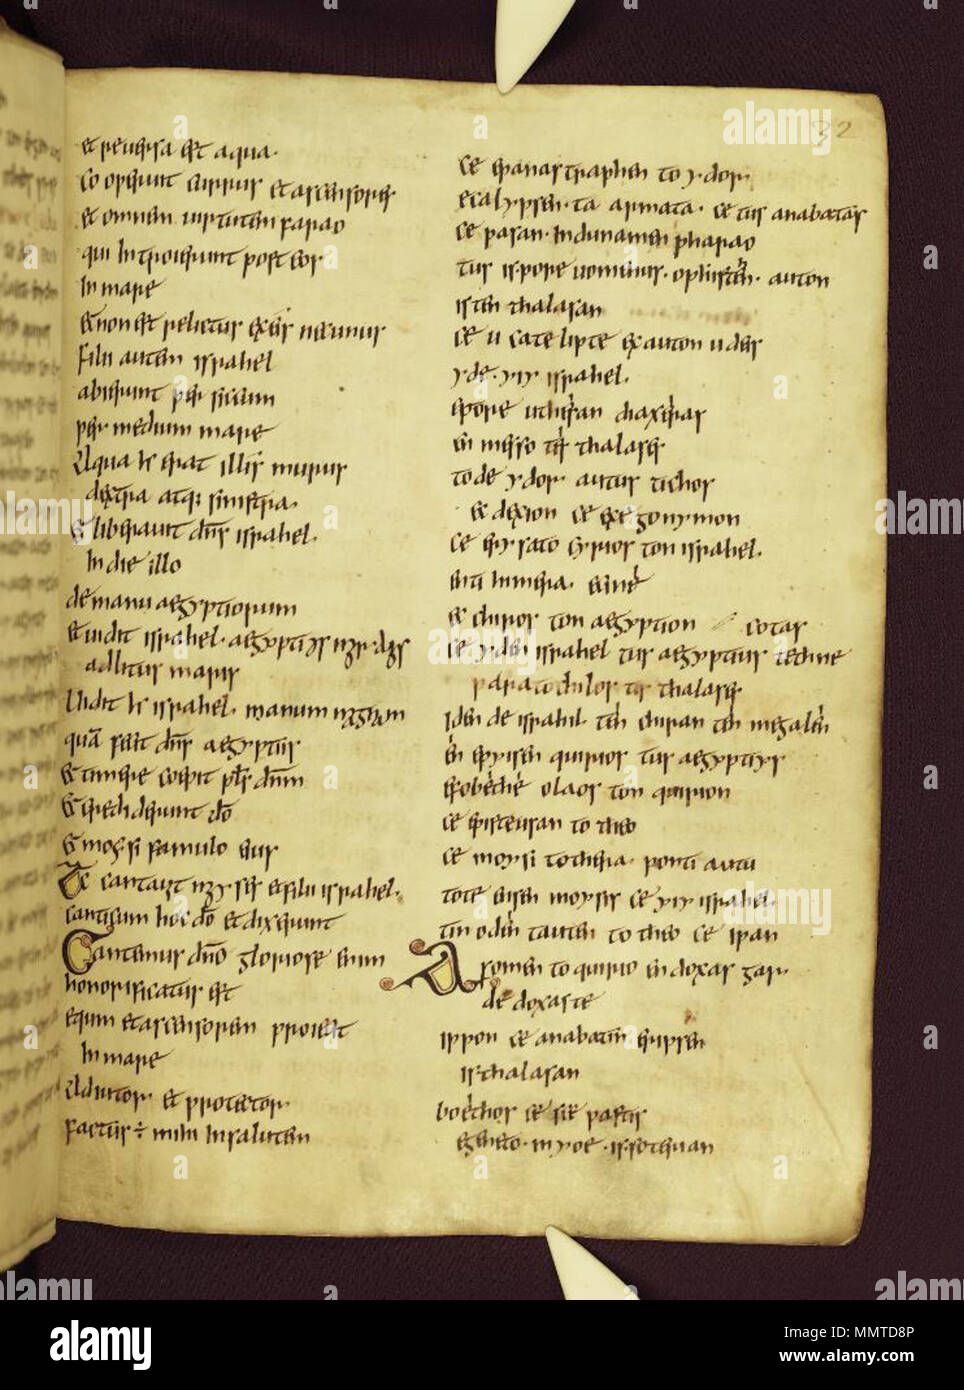 32
et reuersa est aqua.
co operuit currus et ascensores
et omnem uirtutem farao
qui introierunt post eos
In mare
et non est relictus ex eis nec unus
Filii autem israhel
abierunt per siccum
per medium mare
Aqua h erat illis murus
dextra atq: sinistra.
et liberauit dns israhel.
In die illo
de manu aegyptiorum
et uidit israhel. aegyptios
ad litus maris
Uidit h israhel. manum
quā fecit dns aegyptiis
et timere coepit pls dnm
et crediderunt do
et moysi famulo eius
Tc cantauit et filii israhel.
canticum hoc do et dixerunt
Cantemus dno gloriose enim
honorificatus est
equm et ascensorem proiecit
In mare
Adiutor. et protector.
factus ÷ mihi In salutem
ce epanastraphen to ydor
ecalypsen. ta armata. ce tus anabatas
ce pasan. In dunamen pharao
tus isporeuomenus. ophisten. auton
isten thalasan
ce u catelipte ex auton u des
y de. yiy israhel.
epore uthisan dia xeras
en messo tes thalases
to de ydor. autus tichos
ex dexion ce exe gonymon
ce erysato cyrios ton israhel.
enti Imera. eine
ec chiros ton aegyption cotas
ce yden israhel tus aegyptius tedine
para to chilos tes thalases
Iden de israhil. ten chiran ten megalen
en epyisen quirios tus aegyptiys
efobethe olaos ton quirion
ce episteusan to theo
ce moysi to thera ponti autu
tote eisen moysis ce yiy israhel.
tin oden tauten to theo ce ipan
Asomen to quirio en doxas gar.
de doxaste
ippon ce anabatin eripsen
is thalasan
boethos ce scepastis
egeneto. myoe. is soterian
alamy
Image ID: MMTD8P
www.alamy.com